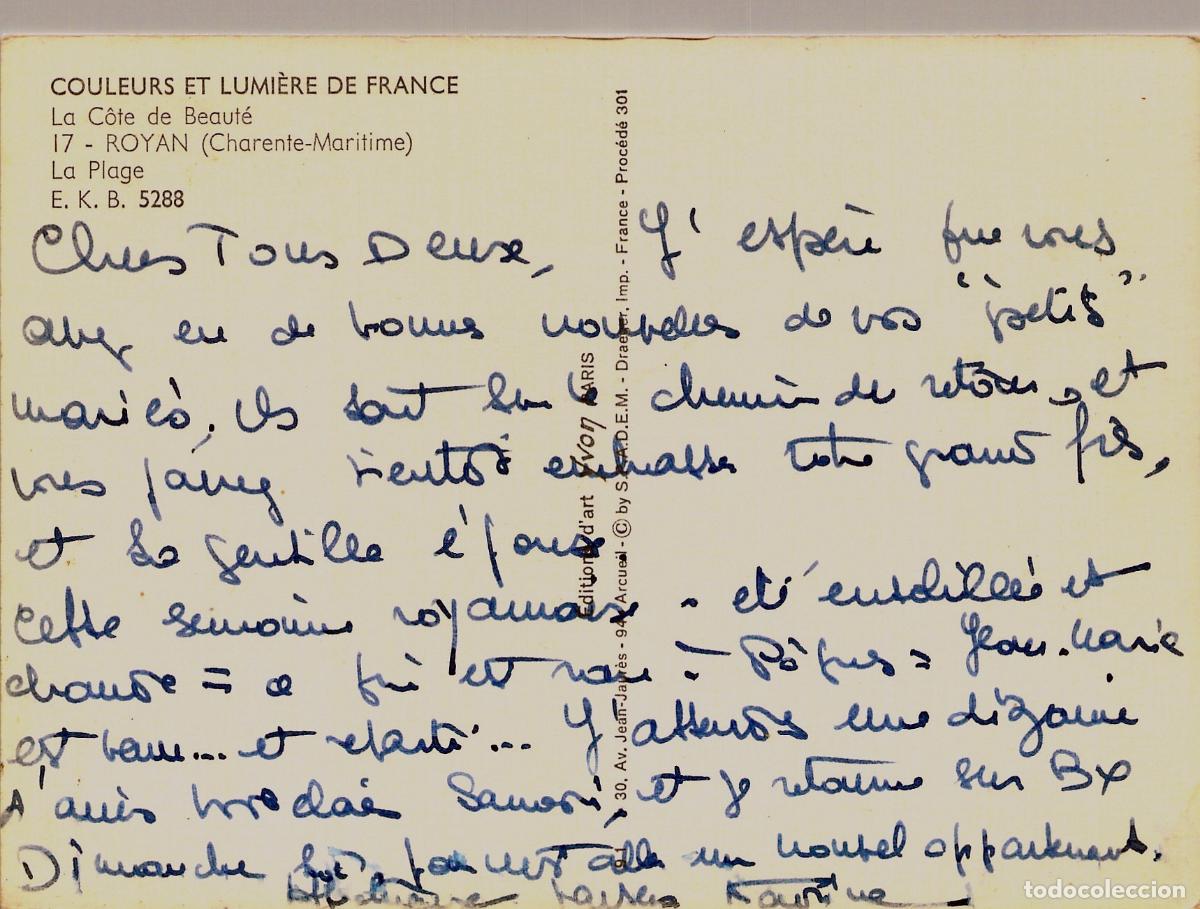 COULEURS ET LUMIÈRE DE FRANCE
La Côte de Beauté
17 - ROYAN (Charente-Maritime)
La Plage
E. K. B. 5288
Chers Tous Deux, J'espère que vous
avez eu de bonnes nouvelles de vos "petits"
mariés, ils sont sur le chemin du retour, et
vous pouvez bientôt embrasser votre grand fils,
et sa gentille épouse.
Cette semaine royannaise a été ensoleillée et
chaude = ce qui est rare = Pâques = Jean-Marie
est venu... et reparti... J'attends une dizaine
d'amis bordelais Samedi, et je retourne sur Bx
Dimanche soir, pour installer un nouvel appartement.
Affectueux baisers
Editions d'art YVON PARIS
30, Av. Jean-Jaurès - 94 Arcueil - © by S.P.A.D.E.M. - Draeger, Imp. - France - Procédé 301
todocoleccion